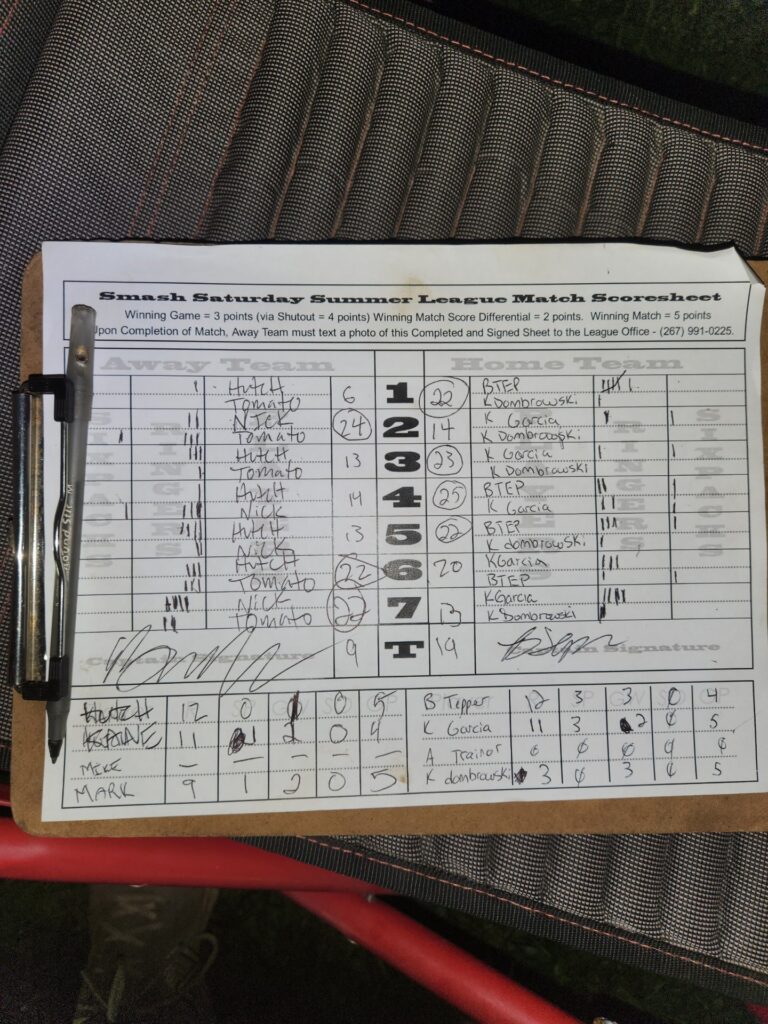 Smash Saturday Summer League Match Scoresheet
Winning Game = 3 points (via Shutout = 4 points) Winning Match Score Differential = 2 points. Winning Match = 5 points
Upon Completion of Match, Away Team must text a photo of this Completed and Signed Sheet to the League Office - (267) 991-0225.
Away Team Home Team
SIXPACKS RINGERS RINGERS SIXPACKS
Hutch 6 1 22 BTEP
Tomato K Dombrowski
Nick 24 2 14 K Garcia
Tomato K Dombrowski
Hutch 13 3 23 K Garcia
Tomato K Dombrowski
Hutch 14 4 25 BTEP
Nick K Garcia
Hutch 13 5 22 BTEP
Nick K dombrowski
Hutch 22 6 20 KGarcia
Tomato BTEP
Nick 7 13 KGarcia
Tomato K Dombrowski
Captain Signature 9 T 19 Signature
HUTCH 12 0 0 5 B Tepper 12 3 3 0 4
11 1 2 0 4 K Garcia 11 3 2 0 5
MIKE — — — — — A Trainor 0 0 0 0 0
MARK 9 1 2 0 5 K dombrowski 3 0 3 0 5